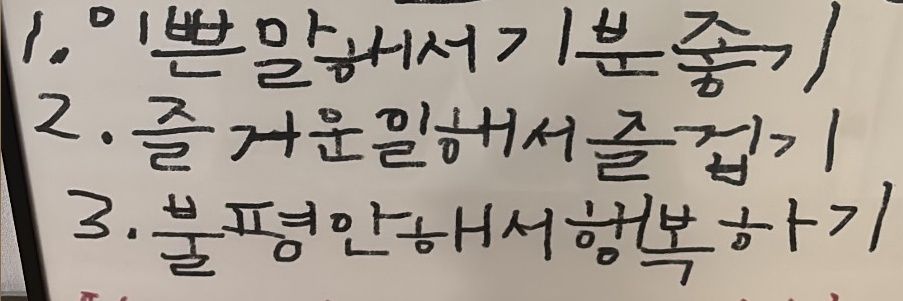 1. 이쁜말해서기분좋기
2. 즐거운일해서즐겁기
3. 불평안해서행복하기